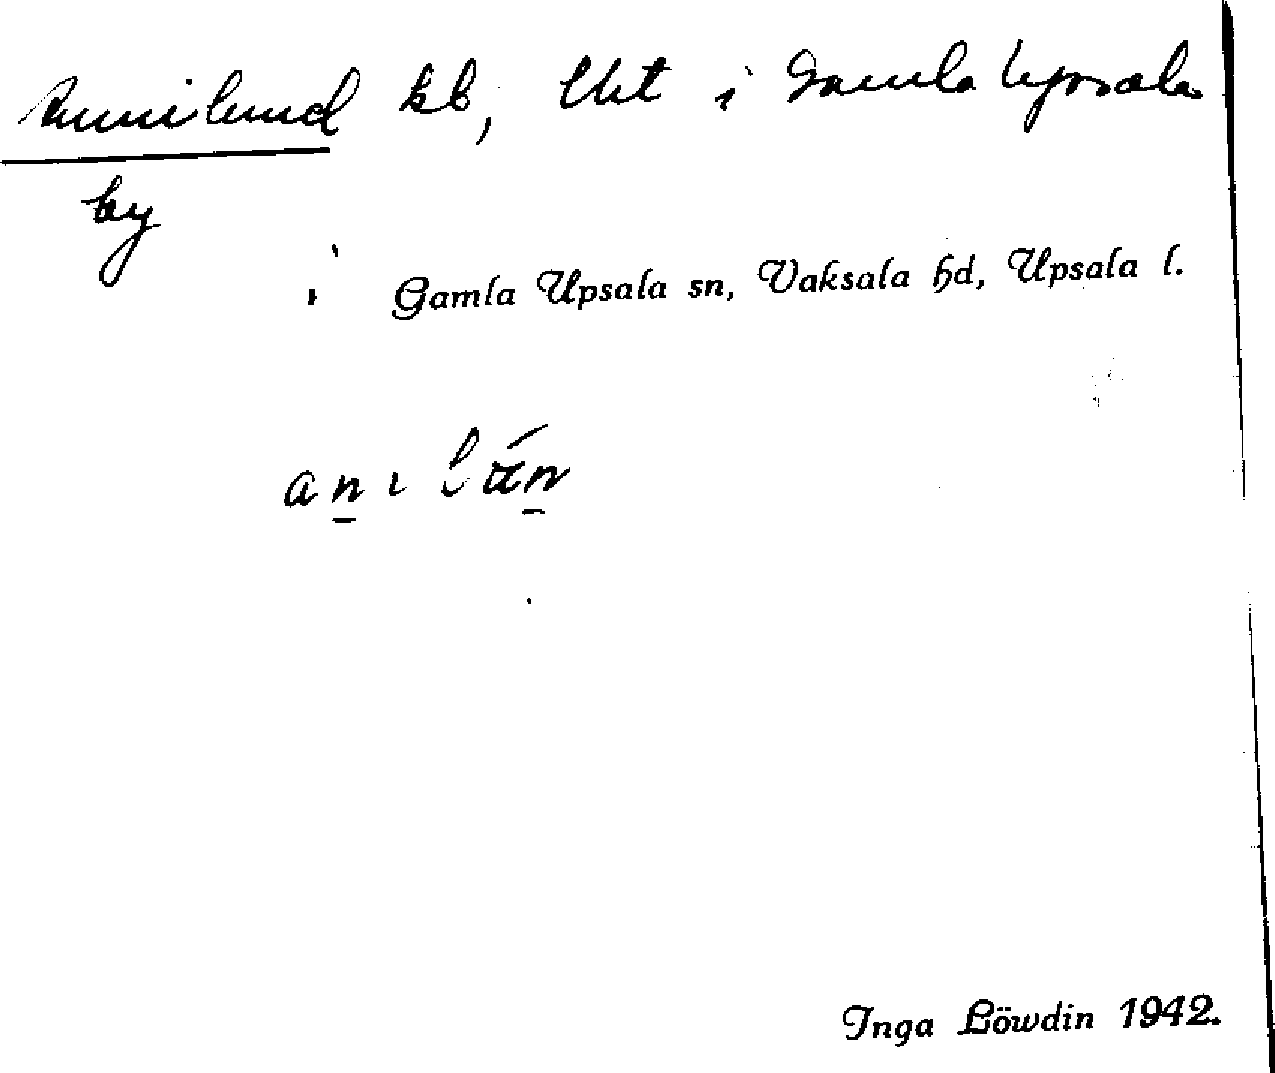 Annilund kb, lht i Gamla Upsala
by
i Gamla Upsala sn, Vaksala hd, Upsala l.
Inga Löwdin 1942.